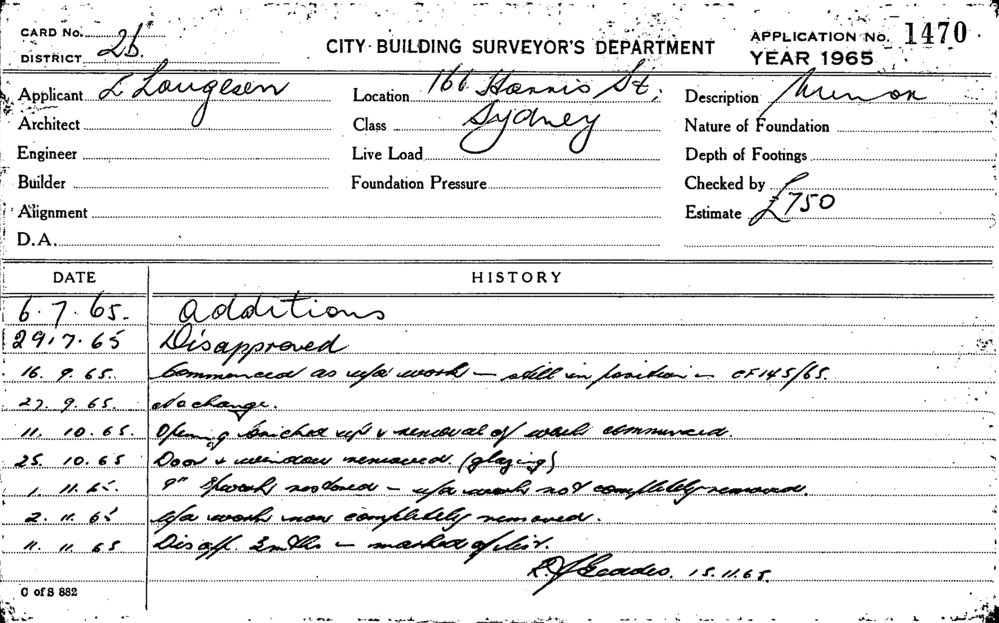 CARD No.
DISTRICT 2b.
CITY BUILDING SURVEYOR'S DEPARTMENT
APPLICATION No. 1470
YEAR 1965
Applicant L Laugesen
Location 166 Harris St,
Description
Architect
Class Sydney
Nature of Foundation
Engineer
Live Load
Depth of Footings
Builder
Foundation Pressure
Checked by
Alignment
Estimate £750
D.A.
DATE HISTORY
6.7.65. additions
29.7.65 Disapproved
16.9.65. Commenced as u/a work – still in position – CF145/65.
27.9.65. No change.
11.10.65. Opening bricked up & removal of work commenced.
25.10.65 Door & window removed (glazing)
1.11.65. 9" removed – u/a work not completely removed.
2.11.65 u/a work now completely removed.
11.11.65 Disapp. 3mths – marked off list.
15.11.65.
C of S 882